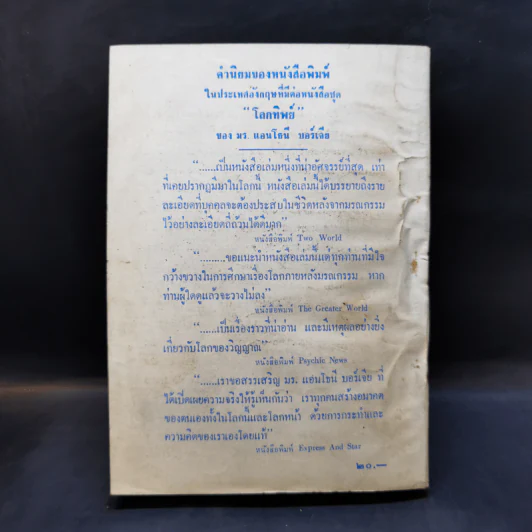 คำนิยมของหนังสือพิมพ์
ในประเทศอังกฤษที่มีต่อหนังสือชุด
"โลกทิพย์"
ของ มร. แอนโธนี บอร์เจีย
"......เป็นหนังสือเล่มหนึ่งที่น่าอัศจรรย์ที่สุด เท่า
ที่เคยปรากฏมีมาในโลกนี้ หนังสือเล่มนี้ได้บรรยายถึงราย
ละเอียดที่บุคคลจะต้องประสบในชีวิตหลังจากมรณกรรม
ไว้อย่างละเอียดถี่ถ้วนได้ดีมาก"
หนังสือพิมพ์ Two World
"........ขอแนะนำหนังสือเล่มนี้แด่ทุกท่านที่มีใจ
กว้างขวางในการศึกษาเรื่องโลกภายหลังมรณกรรม หาก
ท่านผู้ใดดูแล้วจะวางไม่ลง"
หนังสือพิมพ์ The Greater World
"......เป็นเรื่องราวที่น่าอ่าน และมีเหตุผลอย่างยิ่ง
เกี่ยวกับโลกของวิญญาณ"
หนังสือพิมพ์ Psychic News
"......เราขอสรรเสริญ มร. แอนโธนี บอร์เจีย ที่
ได้เปิดเผยความจริงให้รู้เห็นกันว่า เราทุกคนสร้างอนาคต
ของตนเองทั้งในโลกนี้และโลกหน้า ด้วยการกระทำและ
ความคิดของเราเองโดยแท้"
หนังสือพิมพ์ Express And Star
๒๐.—